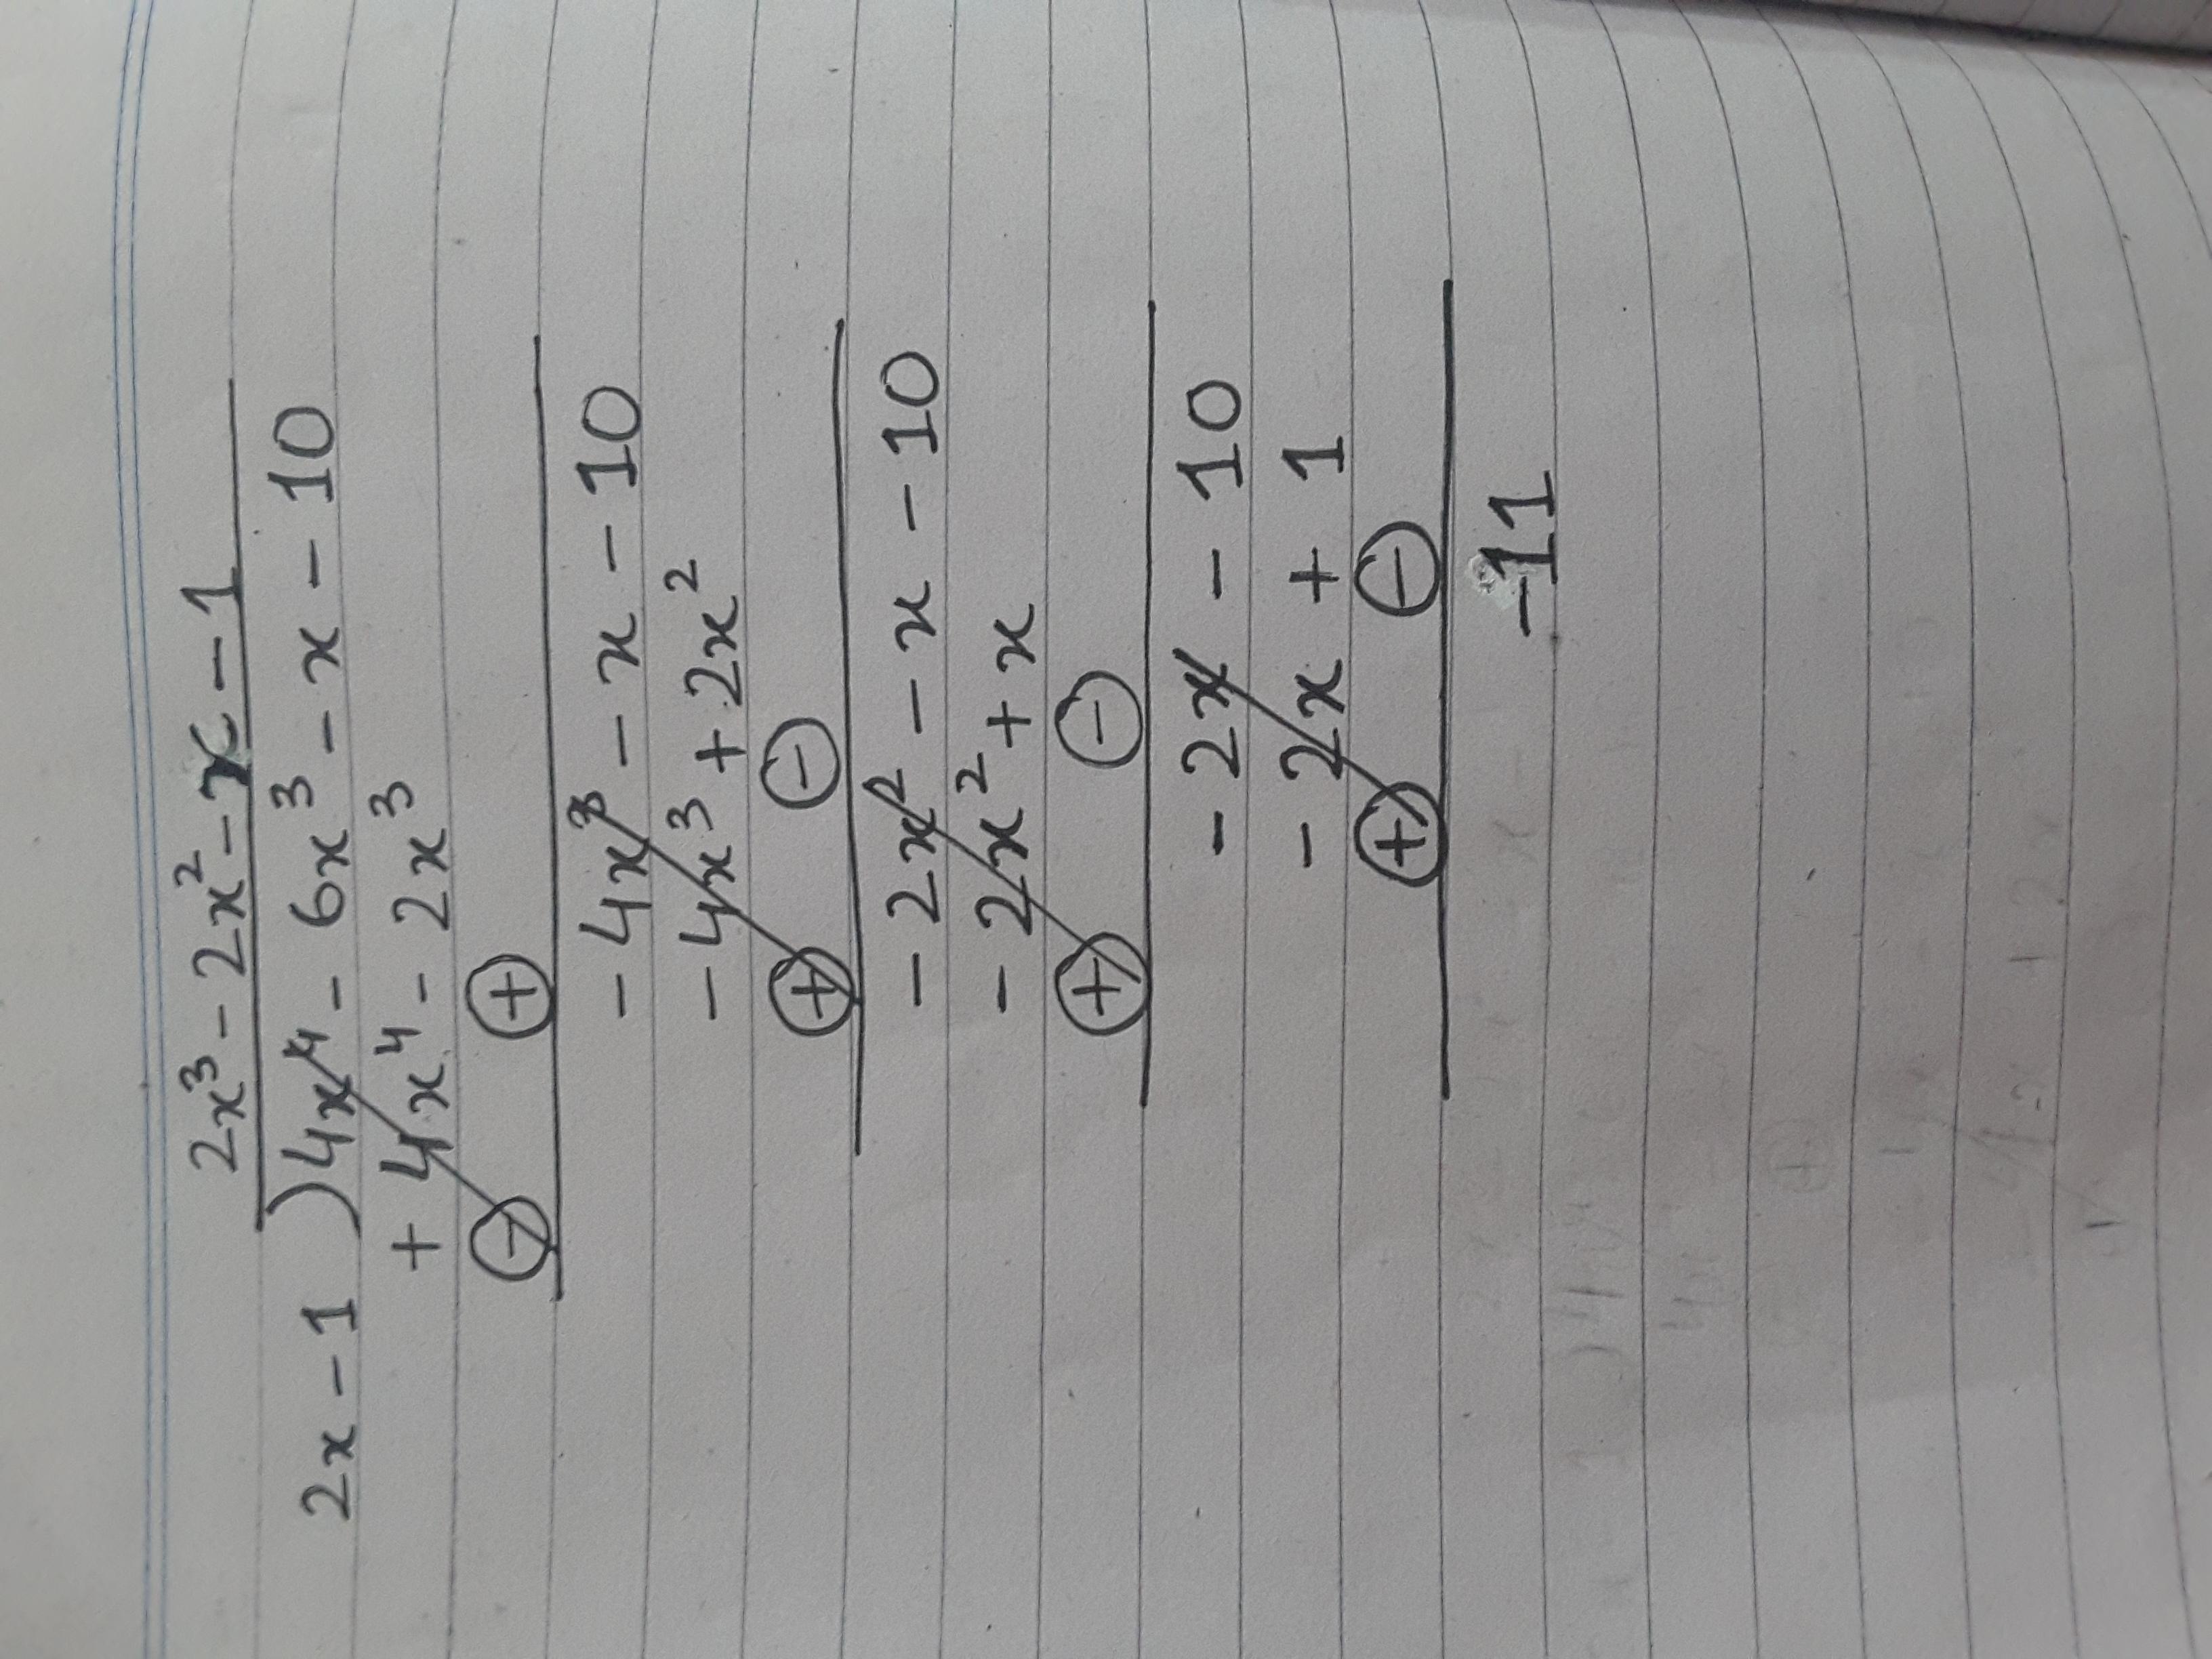 2x³ - 2x² - x - 1
2x - 1 ) 4x⁴ - 6x³ - x - 10
+ 4x⁴ - 2x³
⊖ ⊕
- 4x³ - x - 10
- 4x³ + 2x²
⊕ ⊖
- 2x² - x - 10
- 2x² + x
⊕ ⊖
- 2x - 10
- 2x + 1
⊕ ⊖
-11